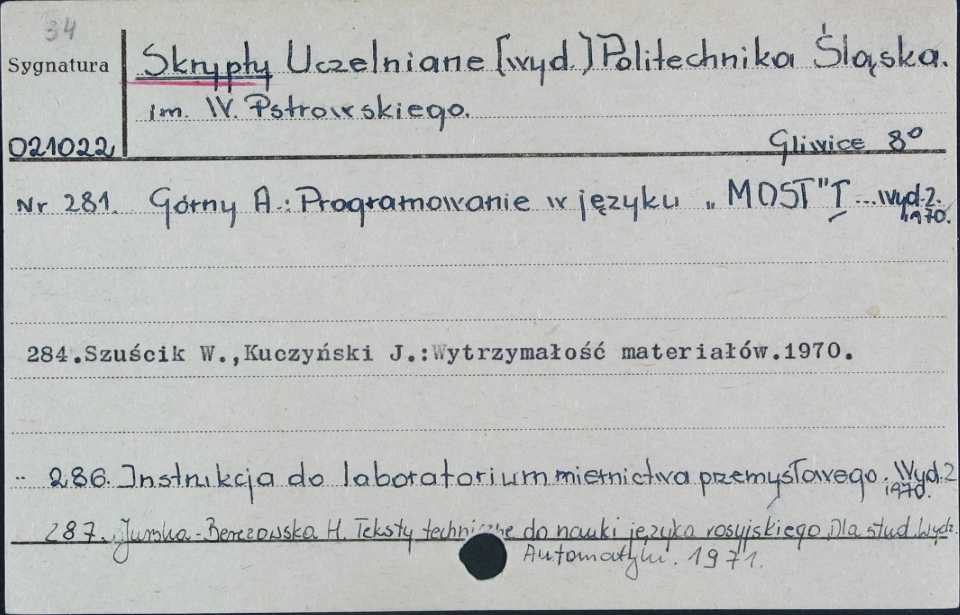 34
Sygnatura
Skrypty Uczelniane [wyd.] Politechnika Śląska.
im. W. Pstrowskiego.
021022
Gliwice 8°
Nr 281. Górny A.: Programowanie w języku „MOST" I ... wyd. 2.
1970.
284.Szuścik W.,Kuczyński J.:Wytrzymałość materiałów.1970.
" 286. Instrukcja do laboratorium miernictwa przemysłowego. Wyd. 2
1970.
287. -Berezowska H. Teksty techniczne do nauki języka rosyjskiego. Dla stud. Wydz.
Automatyki. 1971.